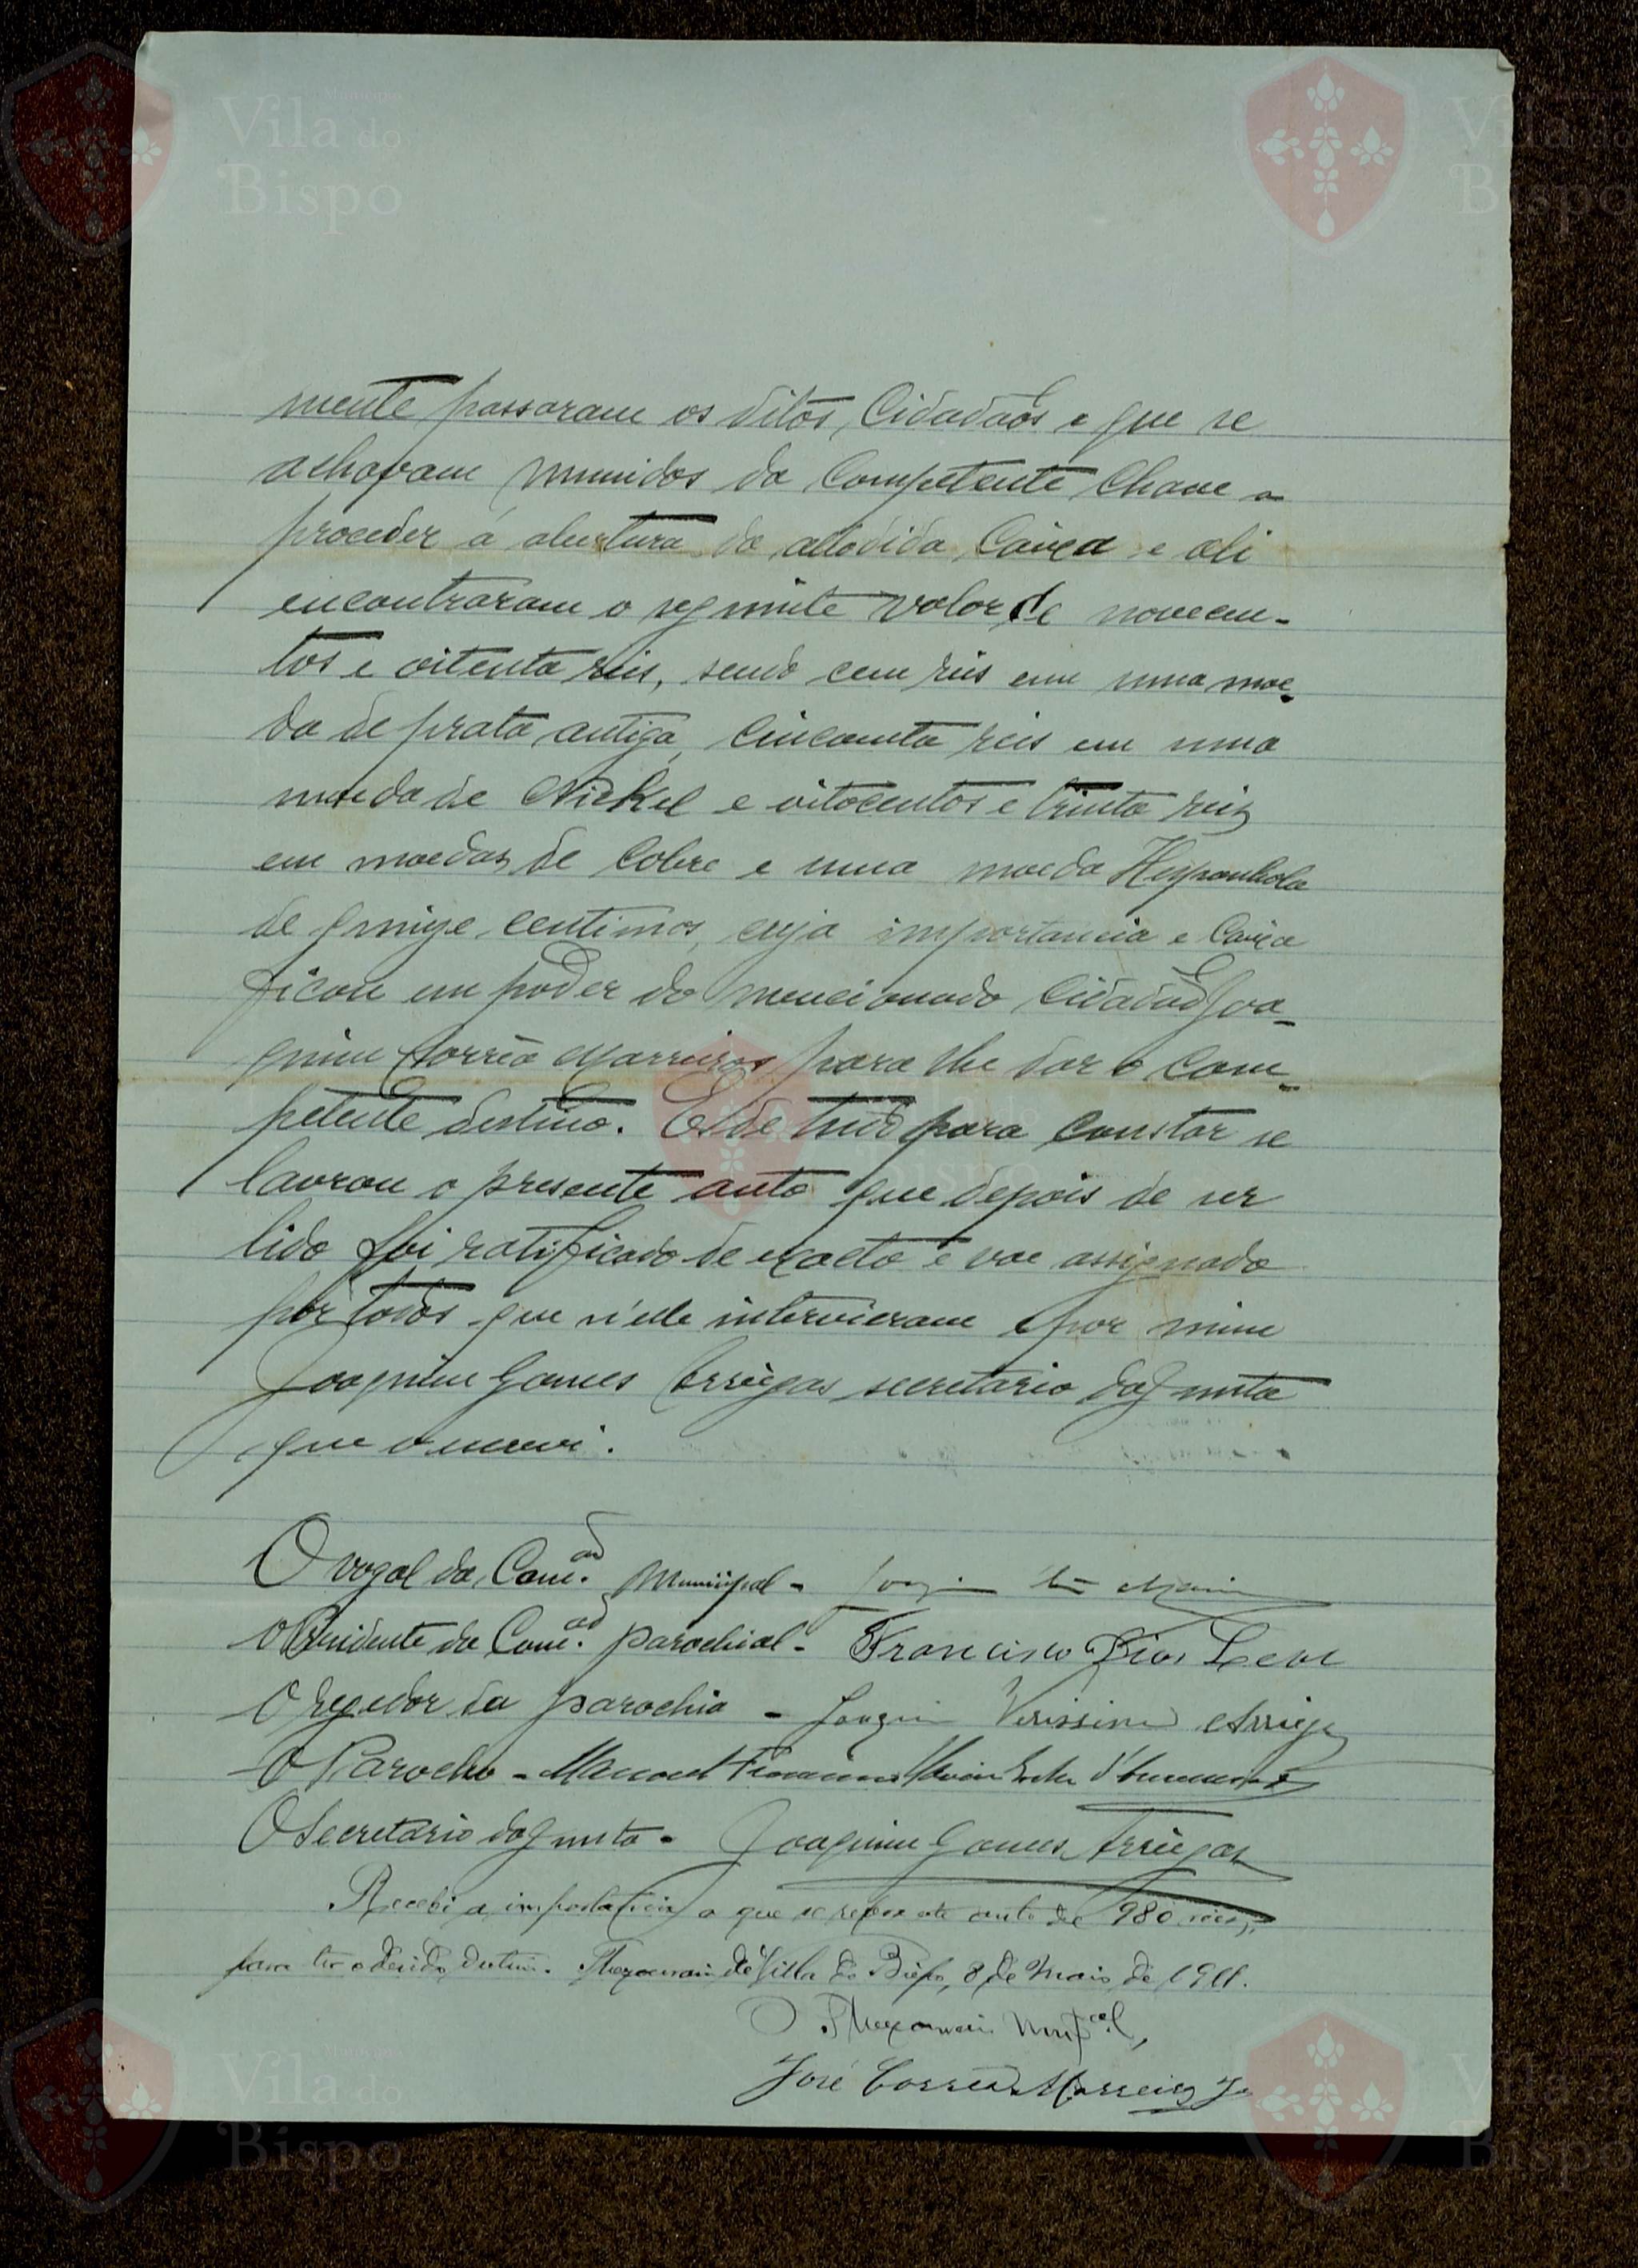 mente passaram os ditos Cidadãos e que se
achavam munidos da Competente Chave a
proceder á abertura da alludida Caixa e ali
encontraram o seguinte valor de novecen-
tos e oitenta reis, sendo cem reis em uma moe-
da de prata antiga, Cincoenta reis em uma
moeda de Nickel e oitocentos e trinta reis
em moedas de Cobre e uma moeda Hespanhola
de quinze centimos, cuja importancia e Caixa
ficou em poder do mencionado Cidadão Joa-
quim Corrêa Marreiros para lhe dar o Com-
petente destino. E de tudo para constar se
lavrou o presente auto que depois de ser
lido foi ratificado de exacto e vae assignado
por todos que n'elle intervieram e por mim
Joaquim Gomes Arriegas secretario da Junta
que o escrevi.
O vogal da Com.ão Municipal - Joaquim
O Presidente da Com.ão parochial - Francisco Dias Leal
O regedor da parochia - Joaquim Verissimo Arriegas
O Parocho - Manoel
O Secretario da Junta - Joaquim Gomes Arriegas
Recebi a importancia a que se refere este auto de 980 reis,
para ter o devido destino. Thezouraria de Villa do Bispo, 8 de Maio de 1911.
O Thezoureiro Munp.cal,
José Corrêa Marreiros Jor
Município
Vila do
Bispo